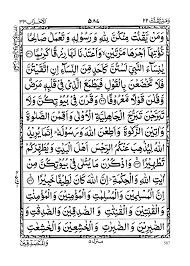 وَمَنْ يَّقْنُتْ ٢٢ الْاَحْزَاب ٣٣
وَمَنْ يَّقْنُتْ مِنْكُنَّ لِلّٰهِ وَرَسُوْلِهٖ وَتَعْمَلْ صَالِحًا
نُّؤْتِهَآ اَجْرَهَا مَرَّتَيْنِ ۙ وَاَعْتَدْنَا لَهَا رِزْقًا كَرِيْمًا
يٰنِسَآءَ النَّبِيِّ لَسْتُنَّ كَاَحَدٍ مِّنَ النِّسَآءِ اِنِ اتَّقَيْتُنَّ
فَلَا تَخْضَعْنَ بِالْقَوْلِ فَيَطْمَعَ الَّذِيْ فِيْ قَلْبِهٖ مَرَضٌ
وَّقُلْنَ قَوْلًا مَّعْرُوْفًا وَقَرْنَ فِيْ بُيُوْتِكُنَّ وَلَا
تَبَرَّجْنَ تَبَرُّجَ الْجَاهِلِيَّةِ الْاُوْلٰى وَاَقِمْنَ الصَّلٰوةَ
وَاٰتِيْنَ الزَّكٰوةَ وَاَطِعْنَ اللّٰهَ وَرَسُوْلَهٗ اِنَّمَا يُرِيْدُ
اللّٰهُ لِيُذْهِبَ عَنْكُمُ الرِّجْسَ اَهْلَ الْبَيْتِ وَيُطَهِّرَكُمْ
تَطْهِيْرًا وَاذْكُرْنَ مَا يُتْلٰى فِيْ بُيُوْتِكُنَّ مِنْ
اٰيٰتِ اللّٰهِ وَالْحِكْمَةِ اِنَّ اللّٰهَ كَانَ لَطِيْفًا خَبِيْرًا
اِنَّ الْمُسْلِمِيْنَ وَالْمُسْلِمٰتِ وَالْمُؤْمِنِيْنَ وَالْمُؤْمِنٰتِ
وَالْقٰنِتِيْنَ وَالْقٰنِتٰتِ وَالصّٰدِقِيْنَ وَالصّٰدِقٰتِ
وَالصّٰبِرِيْنَ وَالصّٰبِرٰتِ وَالْخٰشِعِيْنَ وَالْخٰشِعٰتِ
منزل ٥